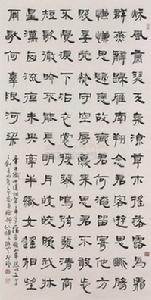 秋風蕭瑟天氣涼草木搖落露為霜
群燕辭歸雁南翔念君客遊思斷腸
慊慊思歸戀故鄉君何淹留寄他方
賤妾煢煢守空房憂來思君不敢忘
不覺淚下沾衣裳援琴鳴弦發清商
短歌微吟不能長明月皎皎照我床
星漢西流夜未央牽牛織女遙相望
爾獨何辜限河梁